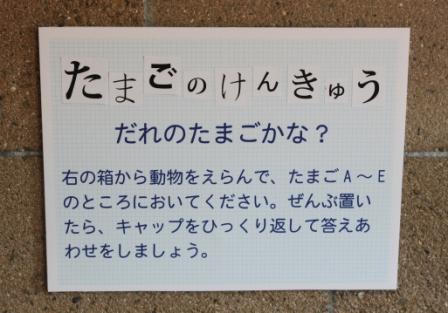 たまごのけんきゅう
だれのたまごかな？
右の箱から動物をえらんで、たまごA～E
のところにおいてください。ぜんぶ置い
たら、キャップをひっくり返して答えあ
わせをしましょう。